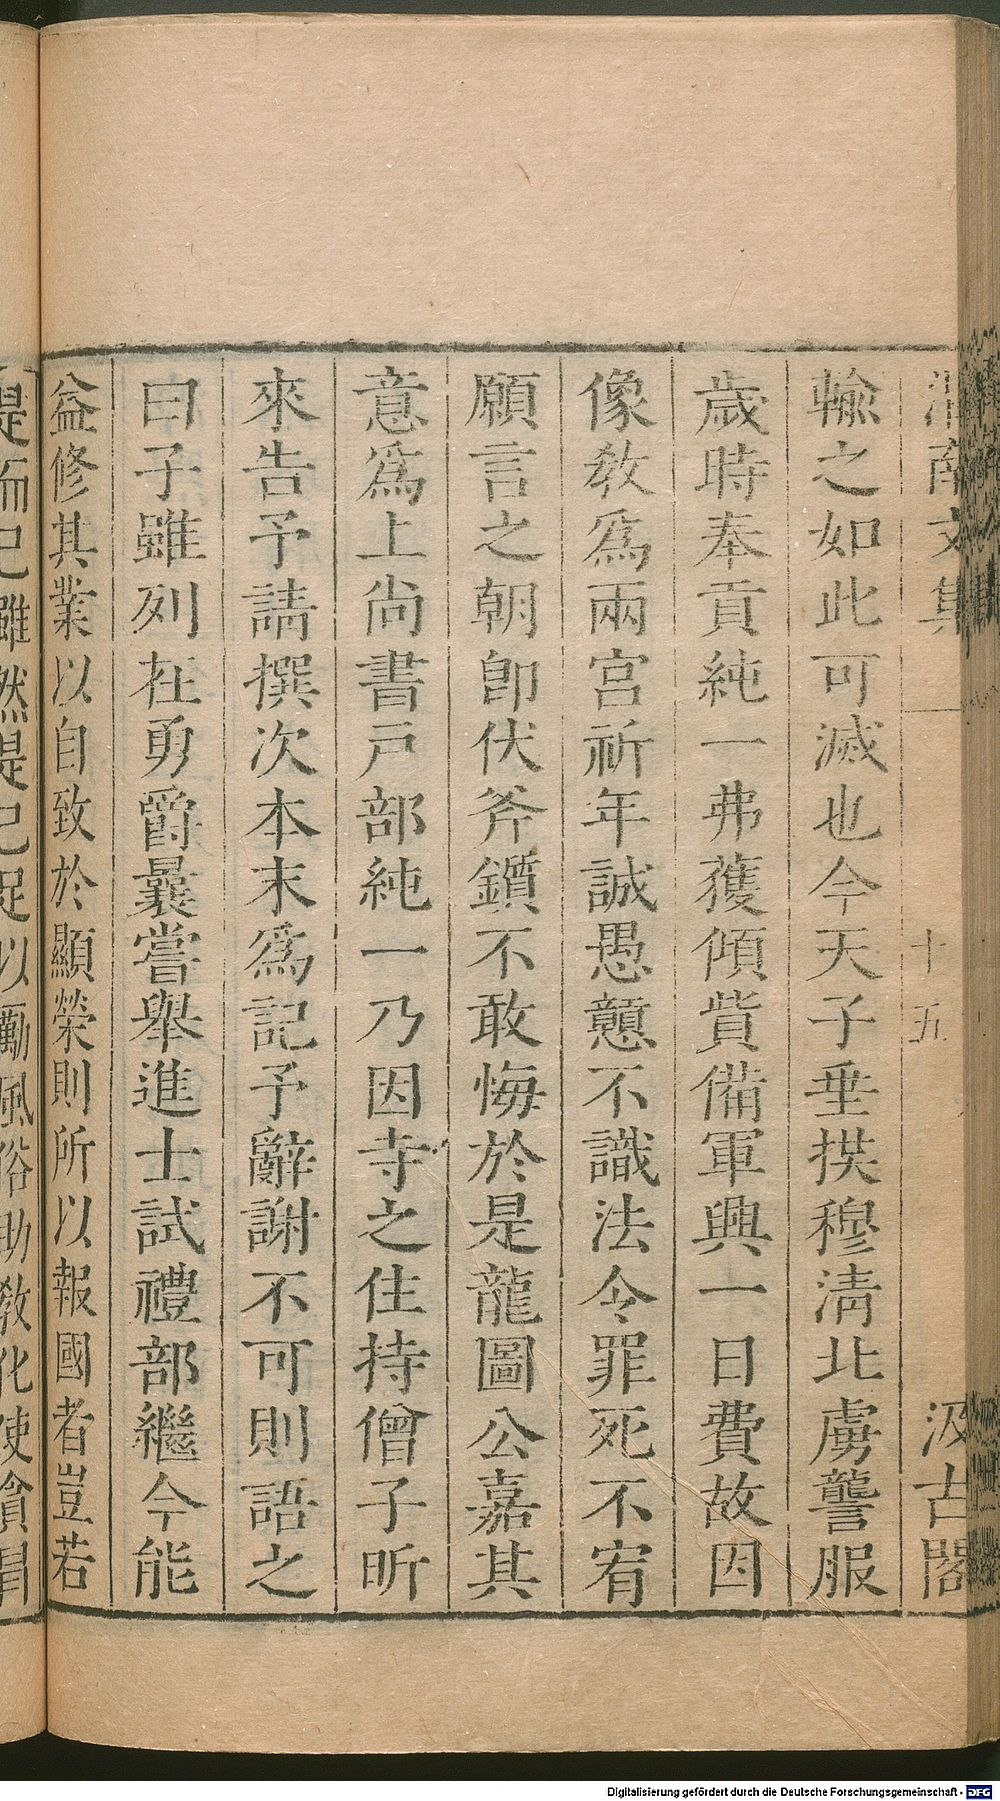 渭南文集 十五 汲古閣
輸之如此可滅也今天子垂拱穆淸北虜讋服
歲時奉貢純一弗獲傾貲備軍興一日費故因
像敎爲兩宮祈年誠愚戇不識法令罪死不宥
願言之朝卽伏斧鑕不敢悔於是龍圖公嘉其
意爲上尚書戸部純一乃因寺之住持僧子昕
來告予請撰次本末爲記予辭謝不可則語之
曰子雖列在勇爵曩嘗舉進士試禮部繼今能
益修其業以自致於顯榮則所以報國者豈若
是而已雖然是已足以勵風俗助敎化使貪
Digitalisierung gefördert durch die Deutsche Forschungsgemeinschaft - DFG